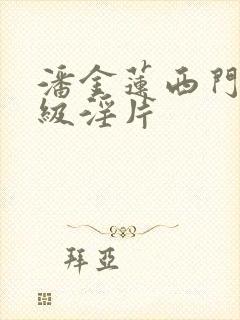 潘金蓮西門
級淫片
拜亞